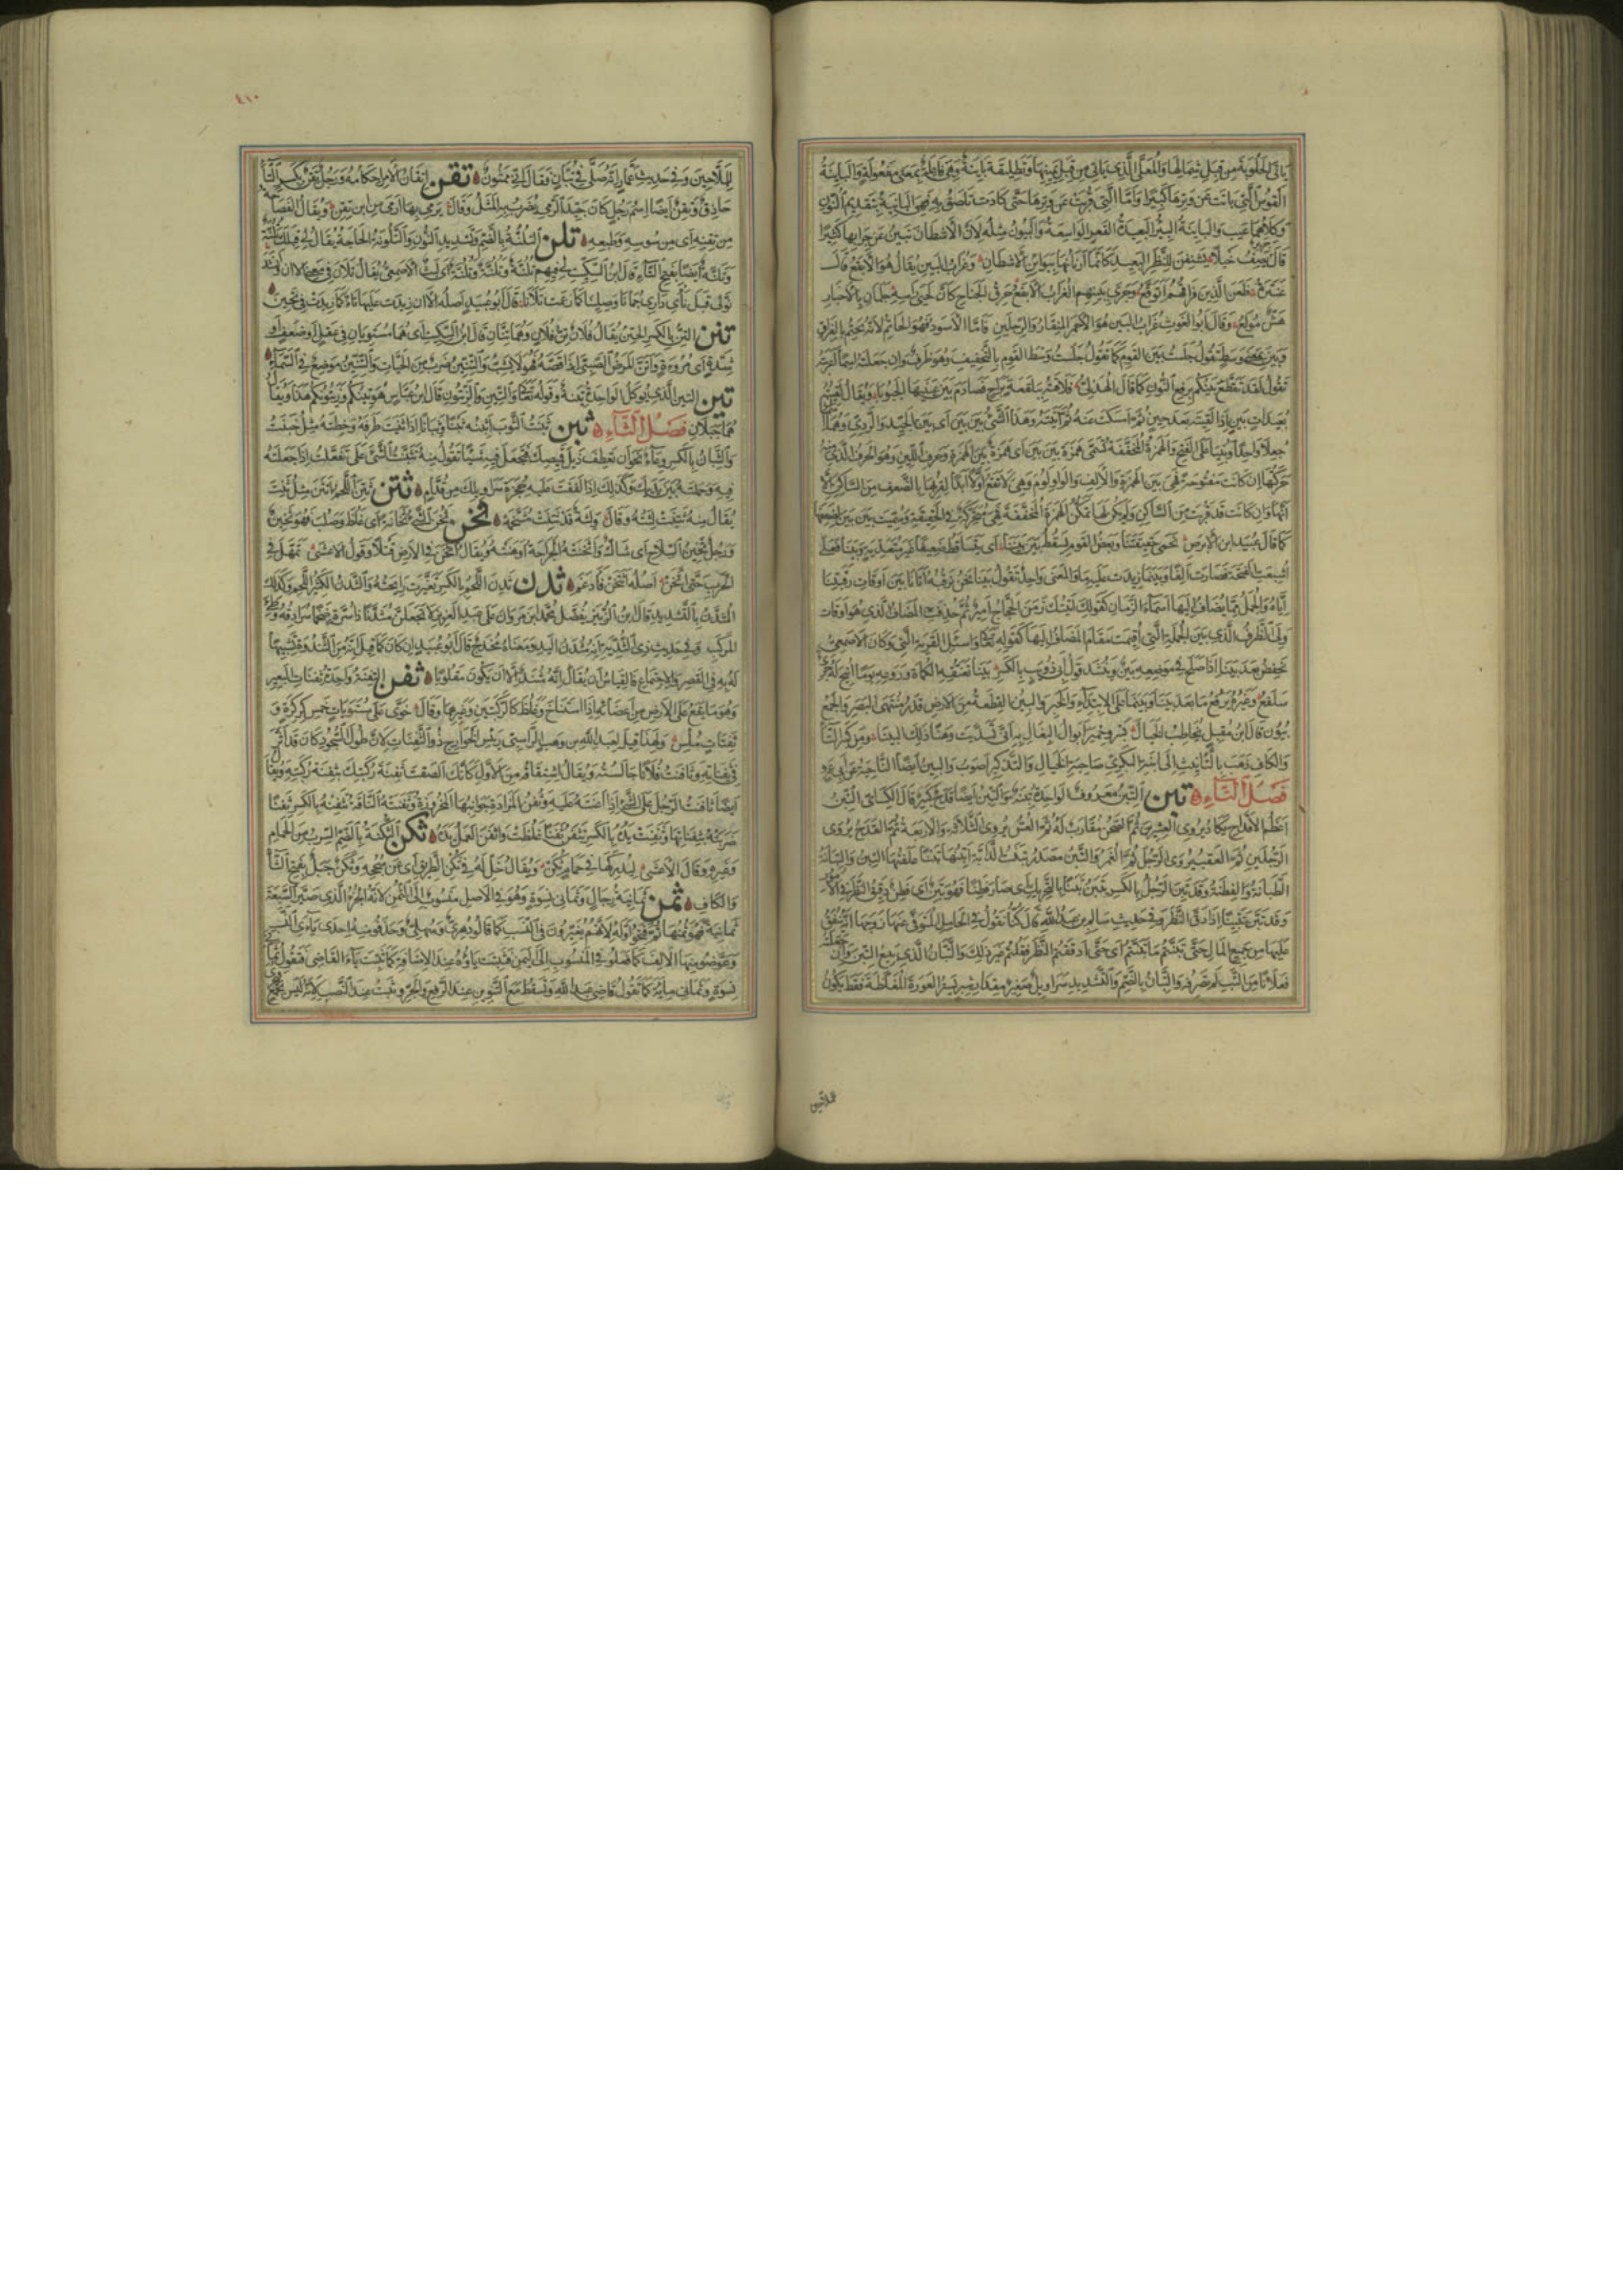 القوس التي بانت عن وترها كثيرا واما التي قربت عن وترها حتى كادت تلصق به فهي البانية بتقديم النون
وكلاهما عيب والباينة البئر البعيدة القعر الواسعة والبيون مثله لان الاشطان تبين عن جرابها كثيرا
قال يصف خيلا يشنفن للنظر البعيد كانما ارنانها ببواين الاشطان وغراب البين يقال هو الابقع قال
عنترة ظعن الذين فراقهم اتوقع وجرى ببينهم الغراب الابقع حرق الجناح كان لحيي راسه جلمان بالاخبار
هش مولع وقال ابو الغوث غراب البين هو الاحمر المنقار والرجلين فاما الاسود فهو الحاتم لانه يحتم بالفراق
وبين بمعنى وسط تقول جلست بين القوم كما تقول جلست وسط القوم بالتخفيف وهو ظرف وان جعلته اسما اعربته
تقول لقد تقطع بينكم برفع النون كما قال الهذلي فلاقته ببلقعة براح فصادم بين عينيها الجبوبا ويقال لقيته
بعيدات بين اذا لقيته بعد حين ثم امسكت عنه ثم اتيته وهذا الشيء بين بين اي بين الجيد والردي وهما
جعلا واحدا وبنيا على الفتح والهمزة المخففة تسمى همزة بين بين اي همزة بين الهمزة وحرف اللين وهو الحرف الذي منه
حركتها ان كانت مفتوحة فهي بين الهمزة والالف
كما قال عبيد ابن الابرص نحمي حقيقتنا وبعض القوم يسقط بين بينا اي يتساقط ضعيفا غير معتد به وبينا فعلى
اشبعت الفتحة فصارت الفا وبينما زيدت عليه ما والمعنى واحد تقول بينا نحن نرقبه اتانا اي بين اوقات رقبتنا
اياه والجمل مما يضاف اليها اسماء الزمان كقولك اتيتك زمن الحجاج امير ثم حذفت المضاف الذي هو اوقات
وولي الظرف الذي بين الجملة التي اقيمت مقام المضاف اليها كقوله تعالى واسئل القرية التي وكان الاصمعي
يخفض بعد بينا اذا صلح في موضعه بين وينشد قول ابي ذويب بالكسر بينا تعنقه الكماة وروغه يوما اتيح له جري
سلفع وغيره يرفع ما بعد بينا وبينما على الابتداء والخبر والبين القطعة من الارض قدر منتهى البصر والجمع
بيون قال ابن مقبل يخاطب الخيال بسرو حمير ابوال البغال به انى تسديت وهنا ذلك البينا ومن كسر التا
والكاف ذهب بالتانيث الى ابنة البكري صاحبة الخيال والتذكير اصوب والبين ايضا الناحية عن ابي عمرو
فصل التاء تبن التبن معروف الواحدة تبنة والتبن ايضا قدح كبير قال الكسائي التبن
اعظم الاقداح يكاد يروي العشرين ثم الصحن مقارب له ثم العس يروي الثلاثة والاربعة ثم القدح يروي
الرجلين ثم القعب يروي الرجل ثم الغمر والتبن مصدر تبنت الدابة اتبنها تبنا علفتها التبن والتبانة
الطبانة والفطنة وقد تبن الرجل بالكسر يتبن تبنا بالتحريك اي صار فطنا فهو تبن اي فطن دقيق النظر في الامور
وقد تبن تتبينا اذا دق النظر وفي حديث سالم بن عبد الله قال كنا نقول في الحامل المتوفى عنها زوجها انه ينفق
عليها من جميع المال حتى تبنتم ما تبنتم اي حتى ادققتم النظر فقلتم غير ذلك والتبان الذي يبيع التبن وان جعلته
فعلان من التب لم تصرفه والتبان بالضم والتشديد سراويل صغير مقدار شبر يستر العورة المغلظة فقط يكون
للملاحين
٤١٠
للملاحين وفي حديث عمار انه صلى في تبان وقال اني ممثون تقن اتقان الامر احكامه ورجل تقن بكسر التا
حاذق وتقن ايضا اسم رجل كان جيد الرمي يضرب به المثل وقال يرمي بها ارمى من ابن تقن ويقال الفصاحة
من تقنه اي من سوسه وطبعه تلن التلنة بالضم وتشديد النون والتلونة الحاجة يقال لي قبلك تلنة
وتلنة ايضا بفتح التاء قال ابن السكيت لي فيهم تلنة وتلنة وتلونة اي لبث الاصمعي يقال تلان في معنى الان وانشد
نولي قبل ناي داري جمانا وصلينا كما زعمت تلانا قال ابو عبيد اصله الان زيدت عليها تاء كما زيدت في تحين
تنن التن بالكسر الحتن يقال فلان تن فلان وهما تنان قال ابن السكيت اي هما مستويان في عقل او ضعف او
شدة او مروة واتن المرض الصبي اذا قصعه فهو لا يشب والتنين ضرب من الحيات والتنين موضع في السماء
تين التين الذي يوكل الواحدة تينة وقوله تعالى والتين والزيتون قال ابن عباس هو تينكم وزيتونكم هذا ويقال
هما جبلان فصل الثاء ثبن ثبنت الثوب اثبنه ثبنا وثبانا اذا ثنيت طرفه وخطته مثل خبنت
والثبان بالكسر وعاء نحو ان تعطف ذيل قميصك فتجعل فيه شيئا تقول منه تثبنت الشيء على تفعلت اذا جعلته
فيه وحملته بين يديك وكذلك اذا لففت عليه حجزة سراويلك من قدام ثتن ثتن اللحم بالكسر انتن مثل ثنت
يقال منه ثتنت لثته وقال ولثة قد ثتنت مشخمه ثخن ثخن الشيء ثخانة اي غلظ وصلب فهو ثخين
ورجل ثخين السلاح اي شاك واثخنته الجراحة اوهنته ويقال اثخن في الارض قتلا وقول الاعشى تمهل في
الحرب حتى اثخن اصله اثتخن فادغم ثدن ثدن اللحم بالكسر تغيرت رايحته والثدن الكثير اللحم وكذلك
المثدن بالتشديد قال ابن الزبير يفضل محمد بن مروان على عبد العزيز لا تجعلن مثدنا ذا سرة ضخما سرادقه وطيء
المركب وفي حديث ذي الثدية انه مثدن اليد ومعناه مخدج قال ابو عبيد ان كان كما قيل انه من الثندوة تشبيها
له به في القصر والاجتماع فالقياس ان يقال انه مثند الا ان يكون مقلوبا ثفن الثفنة واحدة ثفنات البعير
وهو ما يقع على الارض من اعضائه اذا استناخ وغلظ كالركبتين وغيرهما وقال خوى على مستويات خمس كركرة و
ثفنات ملس ولهذا قيل لعبد الله بن وهب الراسبي رييس الخوارج ذو الثفنات لان طول السجود كان قد اثر
في ثفناته وثافنت فلانا جالسته ويقال اشتقاقه من الاول كانك الصقت ثفنة ركبتك بثفنة ركبته ويقال
ايضا ثافنت الرجل على الشيء اذا اعنته عليه وثفن المزادة جوانبها المخروزة وثفنته الناقة تثفنه بالكسر ثفنا
ضربته بثفناتها وثفنت يده بالكسر تثفن ثفنا غلظت واثفن العمل يده ثكن الثكنة بالضم السرب من الحمام
وغيره وقال الاعشى ليدركها في حمام ثكن ويقال خل له عن ثكن الطريق اي عن سجحه وثكن جبل بفتح الثا
والكاف ثمن ثمانية رجال وثماني نسوة وهو في الاصل منسوب الى الثمن لانه الجزء الذي صير السبعة
ثمانية فهو ثمنها ثم فتحوا اوله لانهم يغيرون في النسب كما قالوا دهري وسهلي وحذفوا منه احدى ياءي النسب
وعوضوا منها الالف كما فعلوا في المنسوب الى اليمن فثبتت ياؤه عند الاضافة كما ثبتت ياء القاضي فتقول ثماني
نسوة وثماني مايه كما تقول قاضي عبد الله وتسقط مع التنوين عند الرفع والجر وتثبت عند النصب لانه ليس بجمع